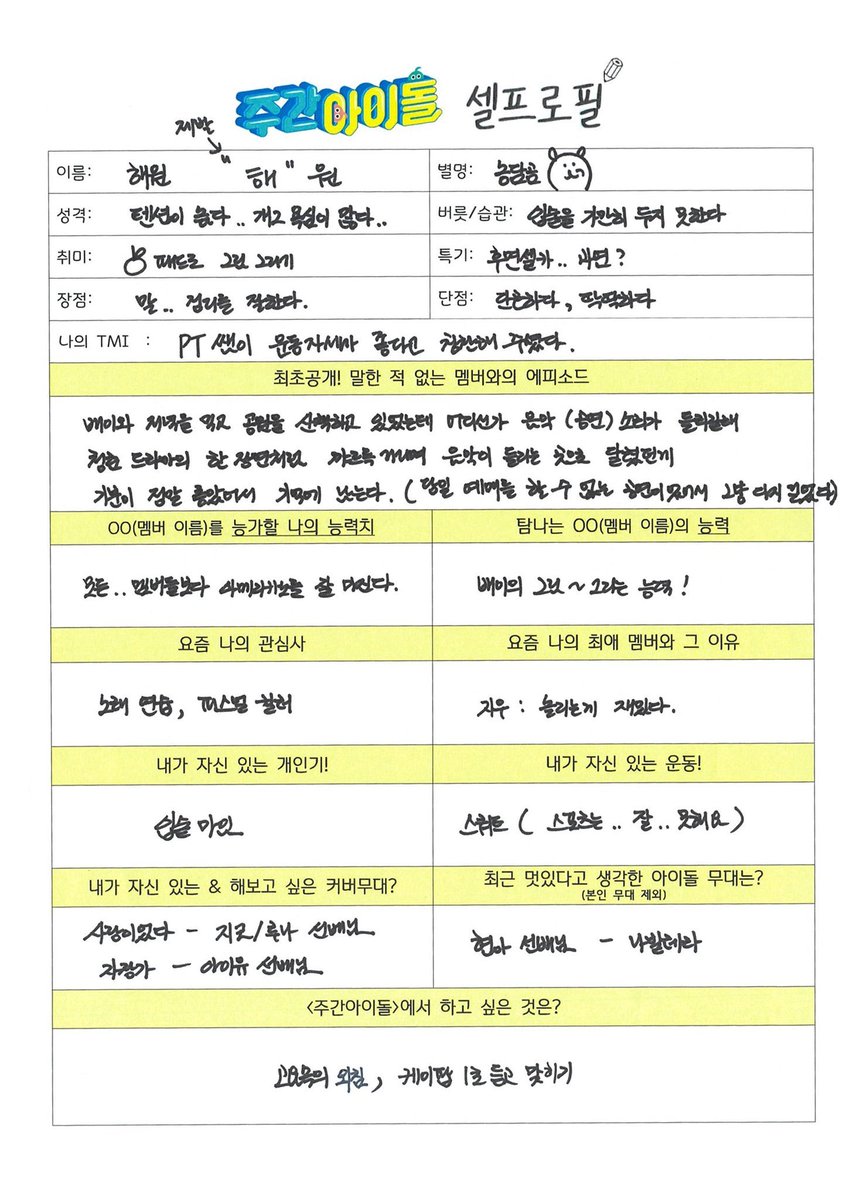 주간아이돌 셀프로필
제발
이름: 해원 "해"원
별명: 송담곰
성격: 텐션이 높다.. 개그 욕심이 많다..
버릇/습관: 입술을 가만히 두지 못한다
취미: 패드로 그림 그리기
특기: 후면셀카.. 바면?
장점: 말.. 정리를 잘한다.
단점: 단순하다, 딱딱하다
나의 TMI : PT 쌤이 운동자세가 좋다고 칭찬해 주셨다.
최초공개! 말한 적 없는 멤버와의 에피소드
배이와 저녁을 먹고 공원을 산책하고 있었는데 어디선가 음악 (공연) 소리가 들리길래
청춘 드라마의 한 장면처럼 까르륵 거리며 음악이 들리는 곳으로 달렸던게
기분이 정말 좋았어서 기억에 남는다. (당일 예매를 할 수 없는 공연이었어서 그냥 다시 걸었다)
OO(멤버 이름)를 능가할 나의 능력치
탐나는 OO(멤버 이름)의 능력
모든.. 멤버들보다 아메리카노를 잘 마신다.
배이의 그림~그리는 능력!
요즘 나의 관심사
요즘 나의 최애 멤버와 그 이유
노래 연습, 필허
지우 : 놀리는게 재밌다.
내가 자신 있는 개인기!
내가 자신 있는 운동!
입술 마임
스쿼트 ( 스포츠는.. 잘.. 못해요 )
내가 자신 있는 & 해보고 싶은 커버무대?
최근 멋있다고 생각한 아이돌 무대는?
(본인 무대 제외)
사랑이었다 - 지코/루나 선배님
자장가 - 아이유 선배님
현아 선배님 - 나빌레라
<주간아이돌>에서 하고 싶은 것은?
고요속의 외침, 케이팝 1초 듣고 맞히기